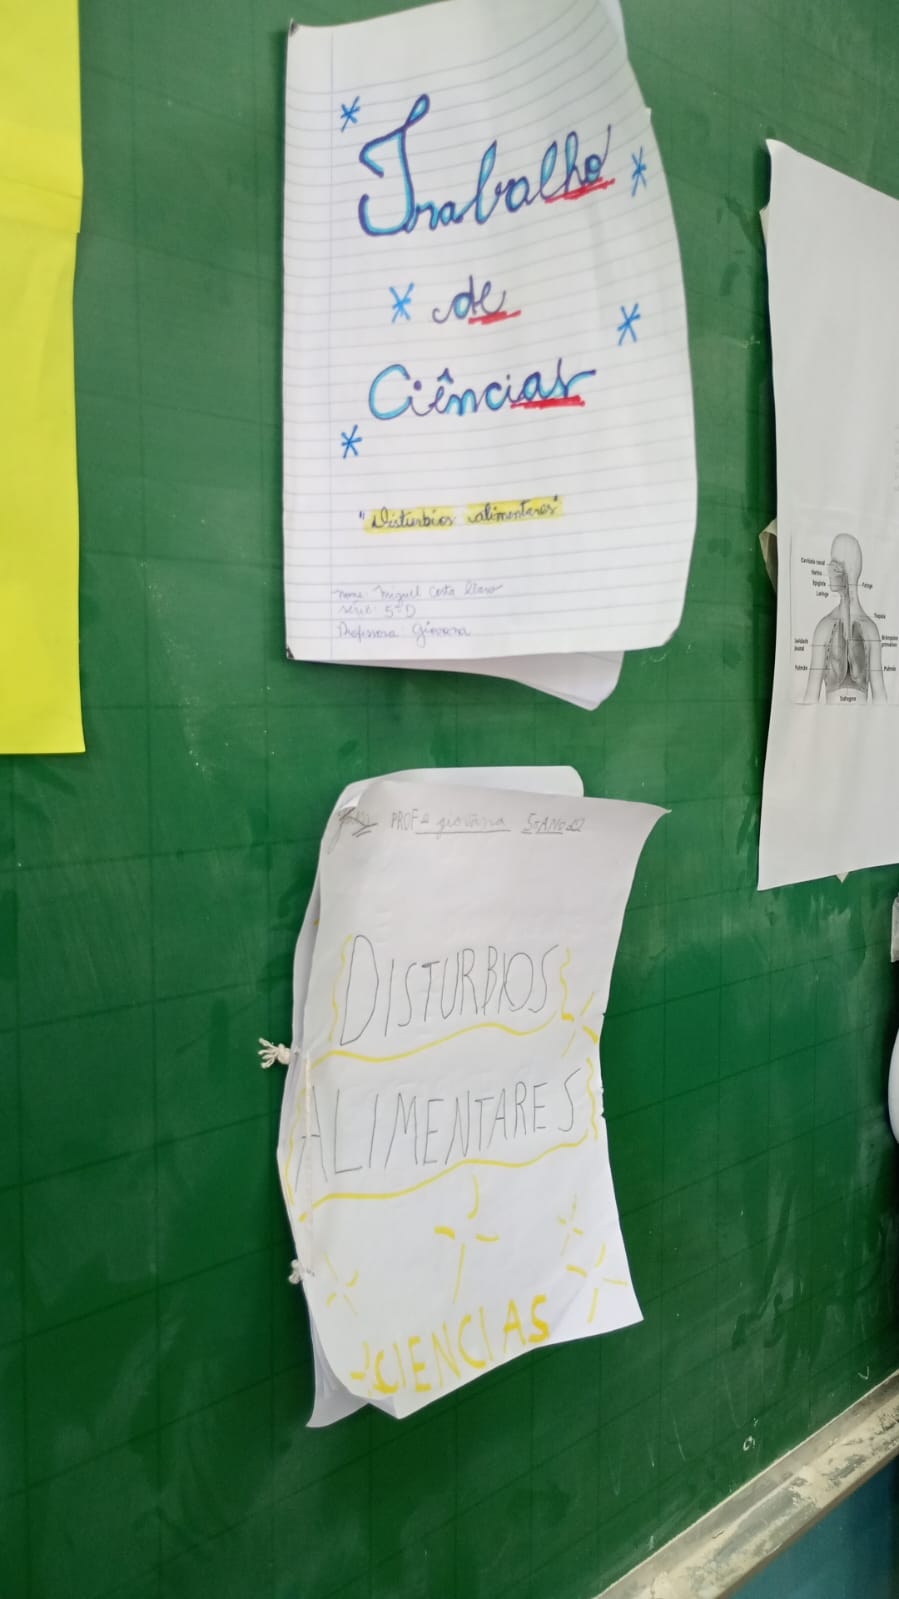 Trabalho
de
Ciências
"Distúrbios alimentares"
nome: Miguel Costa
série: 5º D
Professora Giovana
PROFª giovana 5º ANO
DISTURBIOS
ALIMENTARES
CIENCIAS
Cavidade nasal
Narina
Epiglote
Laringe
Faringe
Traqueia
Pulmão
Pulmão
Diafragma